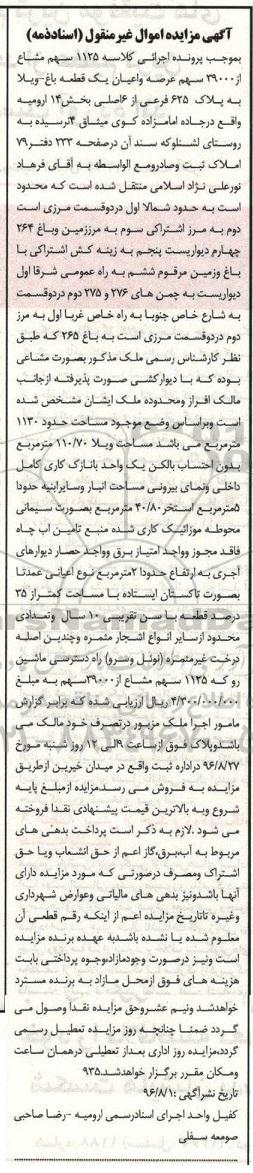 آگهی مزایده اموال غیرمنقول (اسنادذمه)
بموجب پرونده اجرائی کلاسه ۱۱۲۵ سهم مشاع
از۳۹۰۰۰ سهم عرصه واعیان یک قطعه باغ-ویلا
به پلاک ۶۲۵ فرعی از ۶اصلی بخش۱۴ ارومیه
واقع درجاده امامزاده کوی میثاق ۴نرسیده به
روستای لشنلوکه سند آن درصفحه ۲۳۳ دفتر۷۹
املاک ثبت وصادرومع الواسطه به آقای فرهاد
نورعلی نژاد اسلامی منتقل شده است که محدود
است به حدود شمالا اول دردوقسمت مرزی است
دوم به مرز اشتراکی سوم به مرززمین وباغ ۲۶۴
چهارم دیواریست پنجم به زینه کش اشتراکی با
باغ وزمین مرقوم ششم به راه عمومی شرقا اول
دیواریست به چمن های ۲۷۶ و ۲۷۵ دوم دردوقسمت
به شارع خاص جنوبا به راه خاص غربا اول به مرز
دوم دردوقسمت مرزی است به باغ ۲۶۵ که طبق
نظر کارشناس رسمی ملک مذکور بصورت مشاعی
بوده که با دیوارکشی صورت پذیرفته ازجانب
مالک افراز ومحدوده ملک ایشان مشخص شده
است وبراساس وضع موجود مساحت حدود ۱۱۳۰
مترمربع می باشد مساحت ویلا ۱۱۰/۷۰ مترمربع
بدون احتساب بالکن یک واحد بانازک کاری کامل
داخلی ونمای بیرونی مساحت انبار وسایرابنیه حدودا
۵مترمربع استخر ۴۰/۸۰ مترمربع بصورت سیمانی
محوطه موزائیک کاری شده منبع تامین اب چاه
فاقد مجوز وواجد امتیاز برق وواجد حصار دیوارهای
آجری به ارتفاع حدودا ۲مترمربع نوع اعیانی عمدتا
بصورت تاکستان ایستاده با مساحت کمتراز ۳۵
درصد قطعه با سن تقریبی ۱۰ سال وتعدادی
محدود ازسایر انواع اشجار مثمره وچندین اصله
درخت غیرمثمره (نوئل وسرو) راه دسترسی ماشین
رو که ۱۱۲۵ سهم مشاع از۳۹۰۰۰سهم به مبلغ
۴/۳۰۰/۰۰۰/۰۰۰ ریال ارزیابی شده که برابر گزارش
مامور اجرا ملک مزبور درتصرف خود مالک می
باشدوپلاک فوق ازساعت ۹الی ۱۲ روز شنبه مورخ
۹۶/۸/۲۷ دراداره ثبت واقع در میدان خیرین ازطریق
مزایده به فروش می رسد.مزایده ازمبلغ پایه
شروع وبه بالاترین قیمت پیشنهادی نقدا فروخته
می شود .لازم به ذکر است پرداخت بدهی های
مربوط به آب،برق،گاز اعم از حق انشعاب ویا حق
اشتراک ومصرف درصورتی که مورد مزایده دارای
آنها باشدونیز بدهی های مالیاتی وعوارض شهرداری
وغیره تاتاریخ مزایده اعم از اینکه رقم قطعی آن
معلوم شده یا نشده باشدبه عهده برنده مزایده
است ونیز درصورت وجودمازاد،وجوه پرداختی بابت
هزینه های فوق ازمحل مازاد به برنده مسترد
خواهدشد ونیم عشروحق مزایده نقدا وصول می
گردد ضمنا چنانچه روز مزایده تعطیل رسمی
گردد،مزایده روز اداری بعداز تعطیلی درهمان ساعت
ومکان مقرر برگزار خواهدشد.۹۳۵
تاریخ نشرآگهی :۹۶/۸/۱
کفیل واحد اجرای اسنادرسمی ارومیه -رضا صاحبی
صومعه سفلی